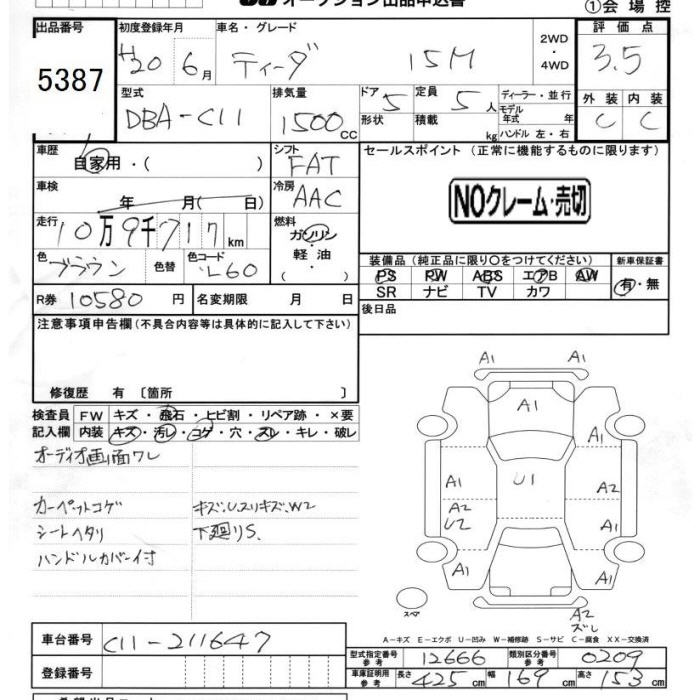 オークション出品申込書
①会場控
出品番号 初度登録年月 車名・グレード 評価点
5387 H20 6月 ティーダ 15M 2WD・4WD 3.5
型式 排気量 ドア 定員 ディーラー・並行 外装 内装
DBA-C11 1500CC 5 5人 モデル年式 年 C C
形状 積載 kg ハンドル 左・右
車歴 シフト セールスポイント (正常に機能するものに限ります)
自家用・( ) FAT
車検 年 月( 日) 冷房 AAC NOクレーム・売切
走行 10万9千717km 燃料 ガソリン・軽油・( )
色 ブラウン 色替 色コード L60
装備品(純正品に限り○をつけてください) 新車保証書
PS PW ABS エアB AW 有・無
SR ナビ TV カワ
R券 10580円 名変期限 月 日 後日品
注意事項申告欄(不具合内容等は具体的に記入して下さい)
修復歴 有〔箇所 〕
検査員 FW キズ・飛石・ヒビ割・リペア跡・×要
記入欄 内装 キズ・汚レ・コゲ・穴・スレ・キレ・破レ
オーディオ画面ワレ
カーペットコゲ キズ.U.スリキズ.W2
シートヘタリ 下廻りS.
ハンドルカバー付
A1 A1
A1
A1 U1 A2
A2 U2 A1
A1 A1
スペア
A2 ズレ
A−キズ E−エクボ U−凹み W−補修跡 S−サビ C−腐食 XX−交換済
車台番号 C11-211647
型式指定番号 参考 12666 類別区分番号 参考 0209
登録番号 車庫証明用 参考 長さ 425cm 幅 169cm 高さ 153cm